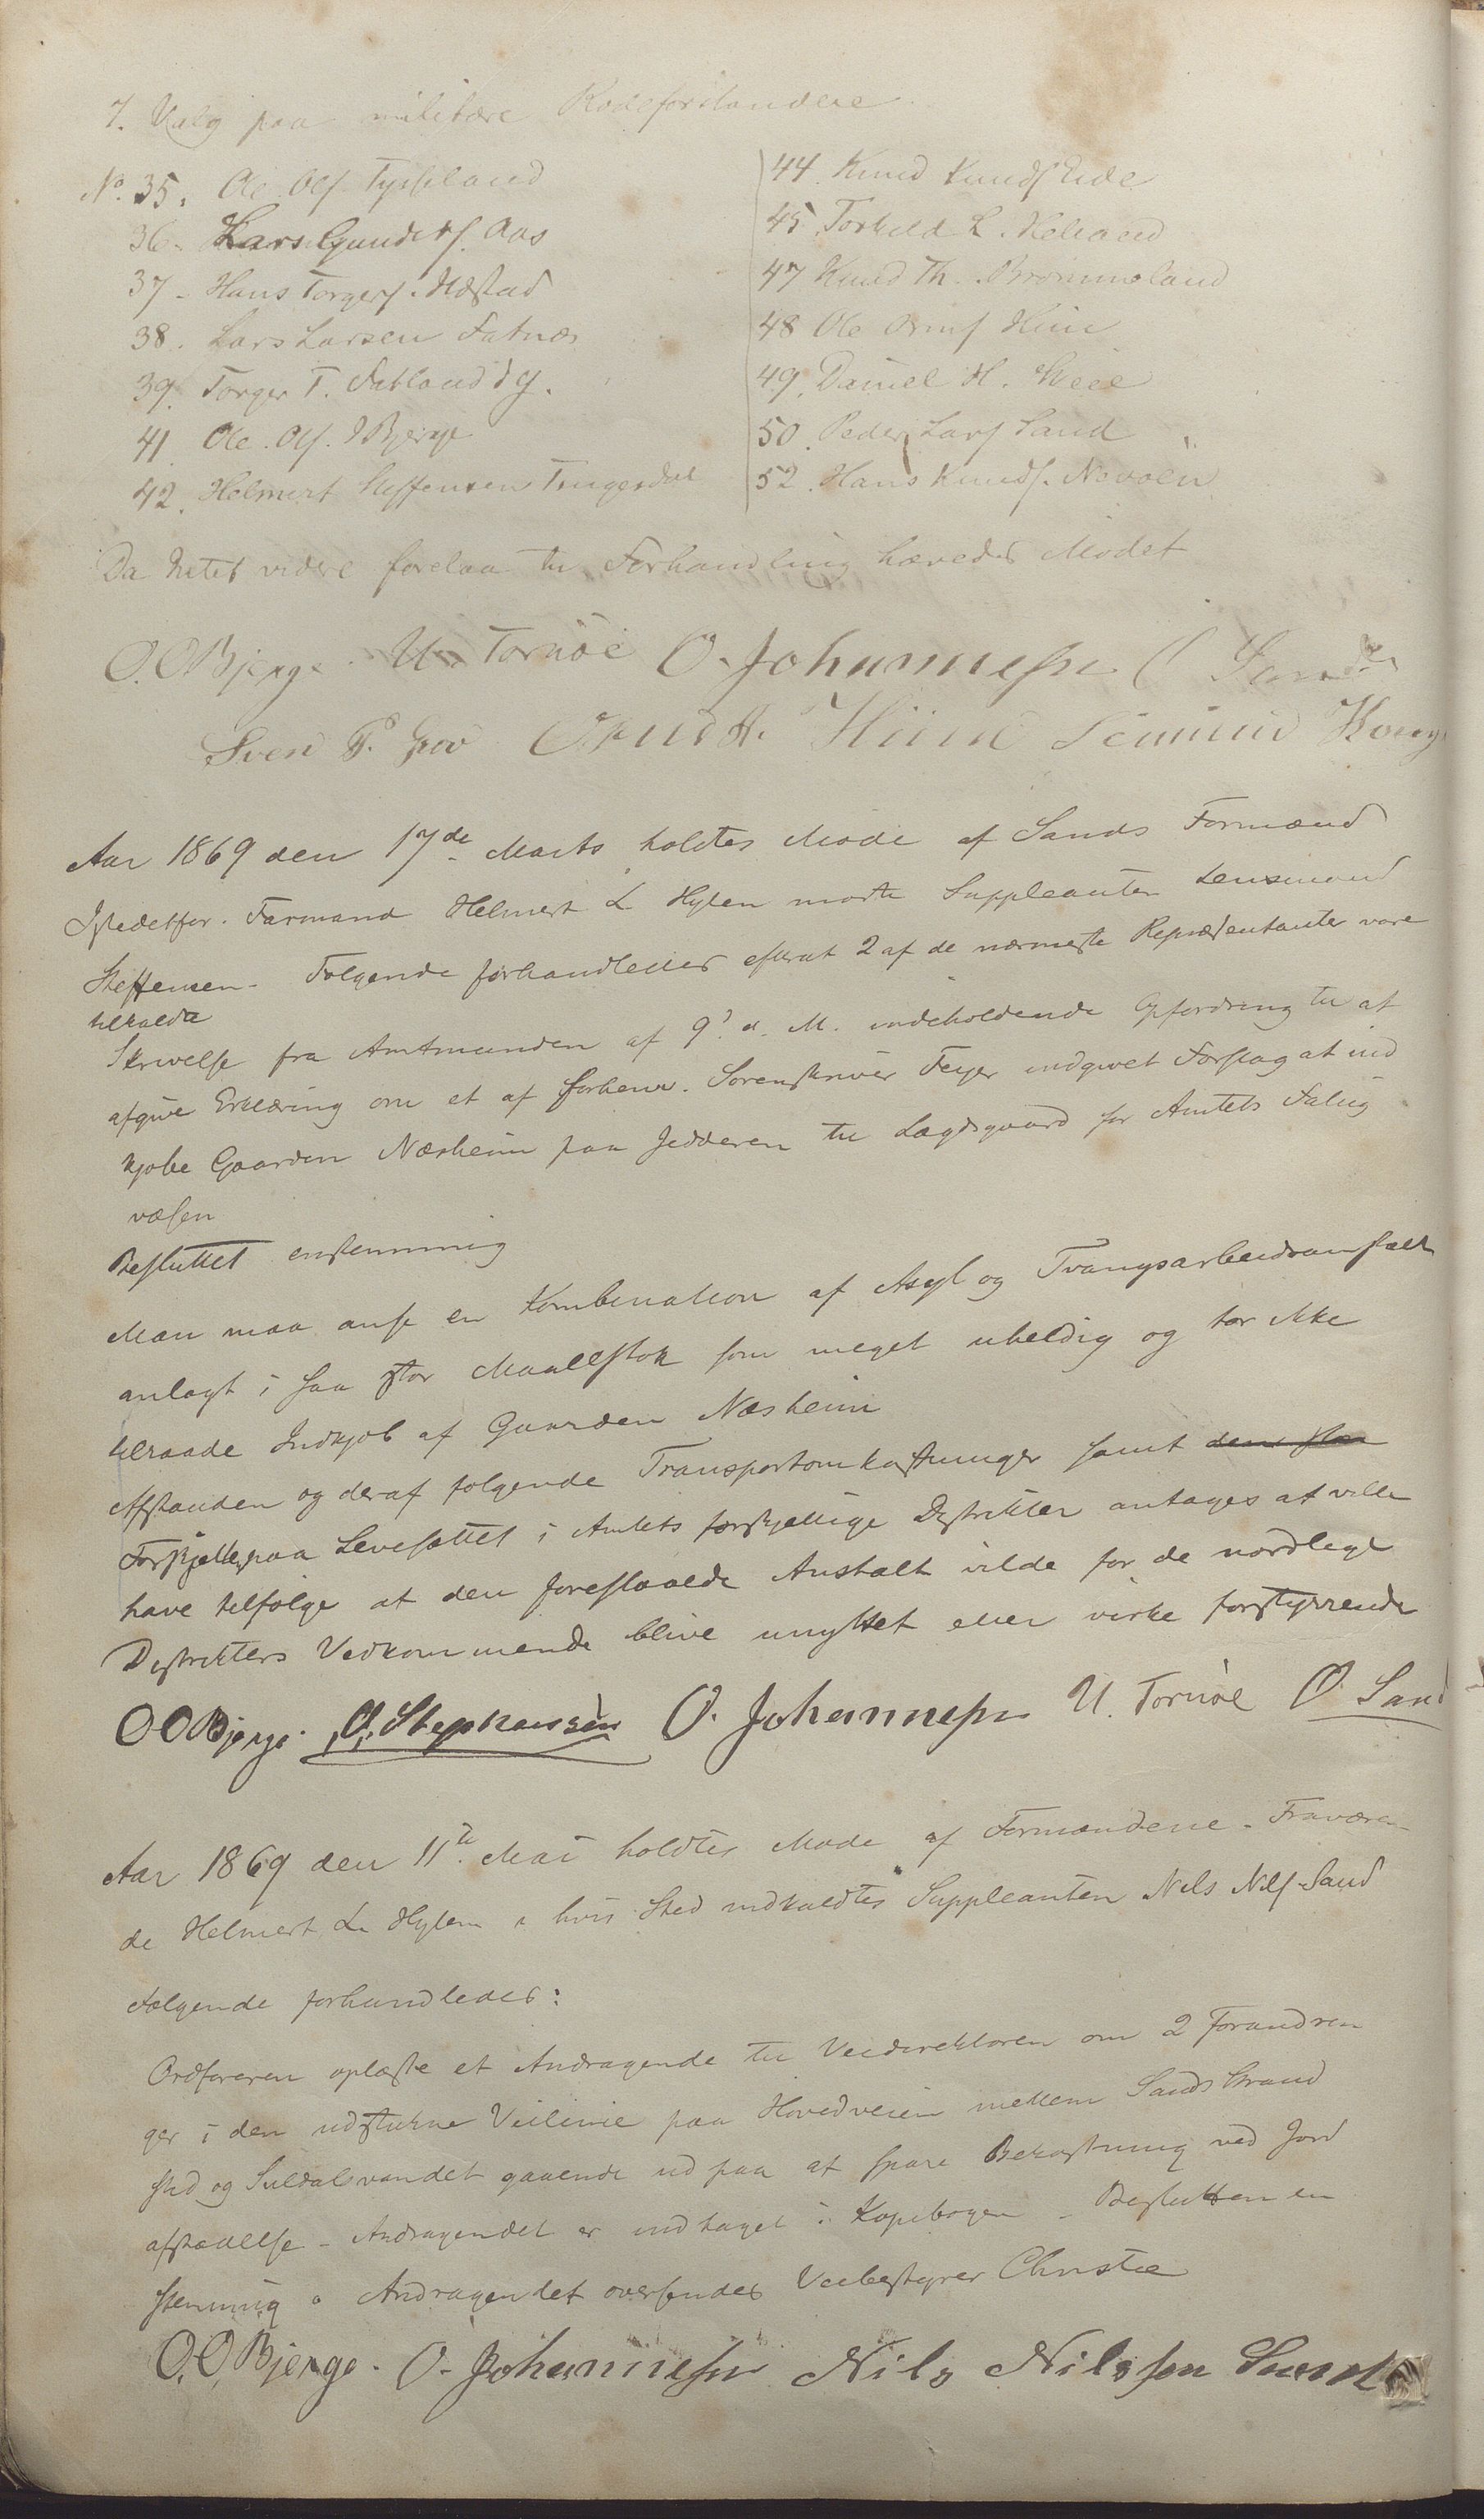 7. Valg paa militære Rodeforstandere
No. 35. Ole Olsf. Tysseland
36 - Lars Gunders. Aas
37 - Hans Torgers. Hæstad
38. Lars Larsen Fatnæs
39. Torger T. Fatland
41. Ole Ols. Bjerge
42. Helmert Steffensen Tengesdal
44. Knud Knuds. Eide
45. Torkild L. Heland
47 Knud Th. Brommeland
48 Ole Orms. Hiim
49. Daniel H.
50. Peder Lars. Sand
52. Hans Knuds. Nevøen
Da Intet videre forelaa til Forhandling hævedes Mødet
O. O Bjerge U. Tornøe O. Johannesen O Sand
Sven P. Hov Ormd H. Hiim
Aar 1869 den 17de Marts holdtes Møde af Sands Formænd
Istedetfor Formand Helmert L Hylen mødte Suppleanten Lensmand
Steffensen - Følgende forhandledes efterat 2 af de nærmeste Repræsentanter vare
tilkaldte
Skrivelse fra Amtmanden af 9de d. M. indeholdende Opfordring til at
afgive Erklæring om et af forhenv. Sorenskriver Feyer indgivet Forslag at ind
kjøbe Gaarden Næsheim paa Jedderen til Lægdsgaard for Amtets Fattig
væsen
Besluttet enstemmig
Man maa anse en Kombination af Asyl og Tvangsarbeidsanstalt
anlagt i saa stor Maalestok som meget uheldig og tør ikke
tilraade Indkjøb af Gaarden Næsheim
Afstanden og deraf følgende Transportomkostninger samt den stor
Forskjellen paa Levesættet i Amtets forskjellige Distrikter antages at ville
have tilfølge at den foreslaaede Anstalt vilde for de nordlige
Distrikters Vedkommende blive unyttet eller virke forstyrrende
O O Bjerge. O. Stephansen O. Johannesen U. Tornøe O. Sand
Aar 1869 den 11te Mai holdtes Møde af Formændene - Fraværen
de Helmert L. Hylen i hvis Sted indkaldtes Suppleanten Nils Nils. Sand
Følgende forhandledes:
Ordføreren oplæste et Andragende til Veidirektøren om 2 Forandrin
ger i den udstukne Veilinie paa Hovedveien mellem Sands Strand
sted og Suldalsvandet gaaende ud paa at spare Bekostning ved Jord
afstaaelse - Andragendet er indtaget i Kopibogen - Besluttet en
stemmig o Andragendet oversendes Veibestyrer Christie
O. O Bjerge. O. Johannesen Nils Nilssen Sand